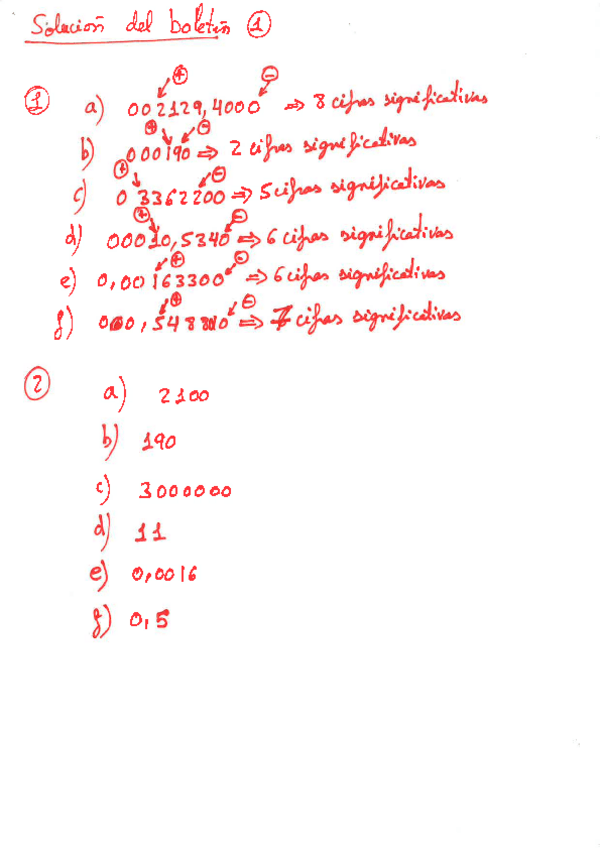 Solución del boletín ①
① a) 002129,4000 ⇒ 8 cifras significativas
b) 000190 ⇒ 2 cifras significativas
c) 03362200 ⇒ 5 cifras significativas
d) 00010,5340 ⇒ 6 cifras significativas
e) 0,00163300 ⇒ 6 cifras significativas
f) 000,548 ⇒ 7 cifras significativas
② a) 2100
b) 190
c) 3000000
d) 11
e) 0,0016
f) 0,5